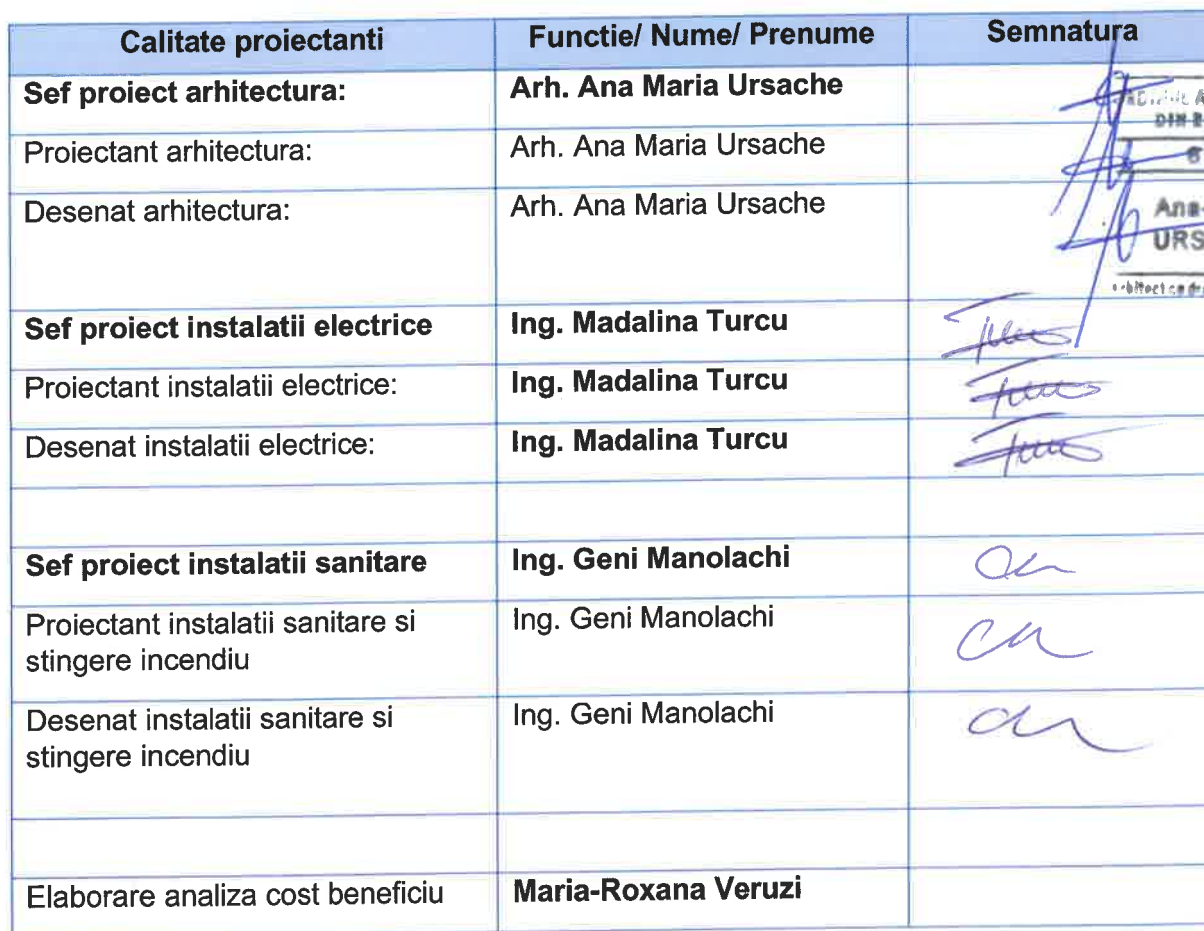 Calitate proiectanti Functie/ Nume/ Prenume Semnatura
Sef proiect arhitectura: Arh. Ana Maria Ursache
DIN
Proiectant arhitectura: Arh. Ana Maria Ursache
Desenat arhitectura: Arh. Ana Maria Ursache
Ana-
URS
Sef proiect instalatii electrice Ing. Madalina Turcu
Proiectant instalatii electrice: Ing. Madalina Turcu
Desenat instalatii electrice: Ing. Madalina Turcu
Sef proiect instalatii sanitare Ing. Geni Manolachi
Proiectant instalatii sanitare si Ing. Geni Manolachi
stingere incendiu
Desenat instalatii sanitare si Ing. Geni Manolachi
stingere incendiu
Elaborare analiza cost beneficiu Maria-Roxana Veruzi